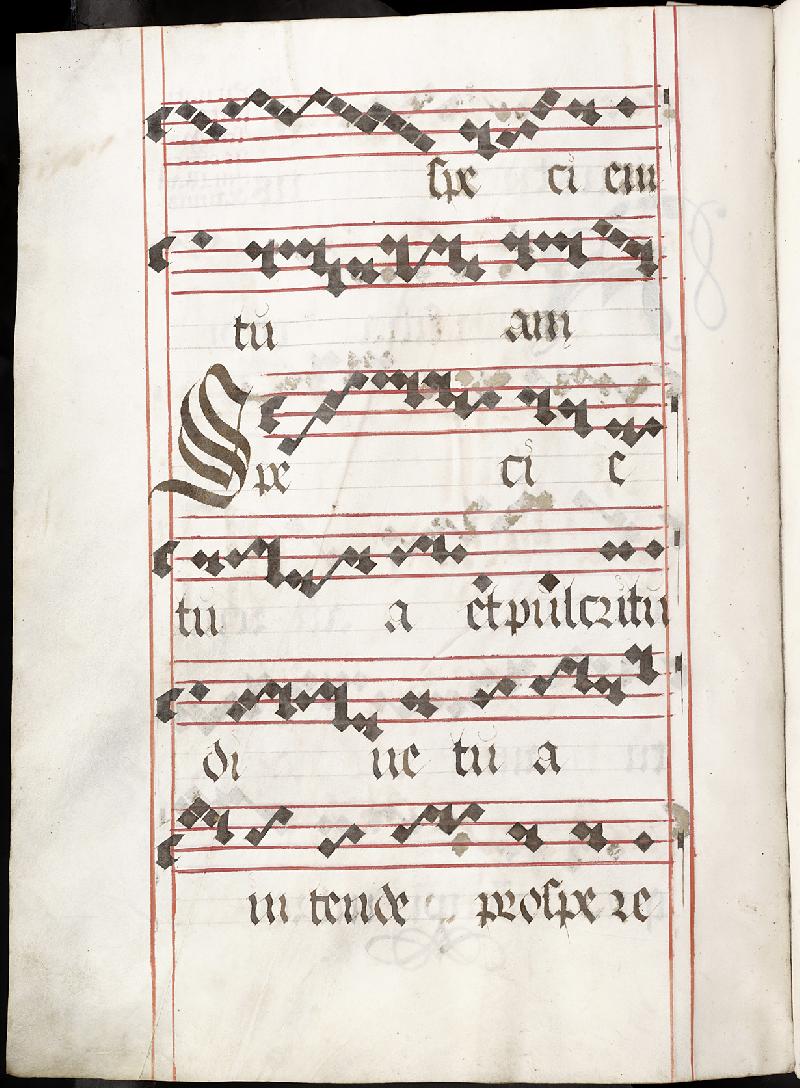 spe ci em
tu am
Spe ci e
tu a et pulcritu
di ne tu a
in tende prospe re